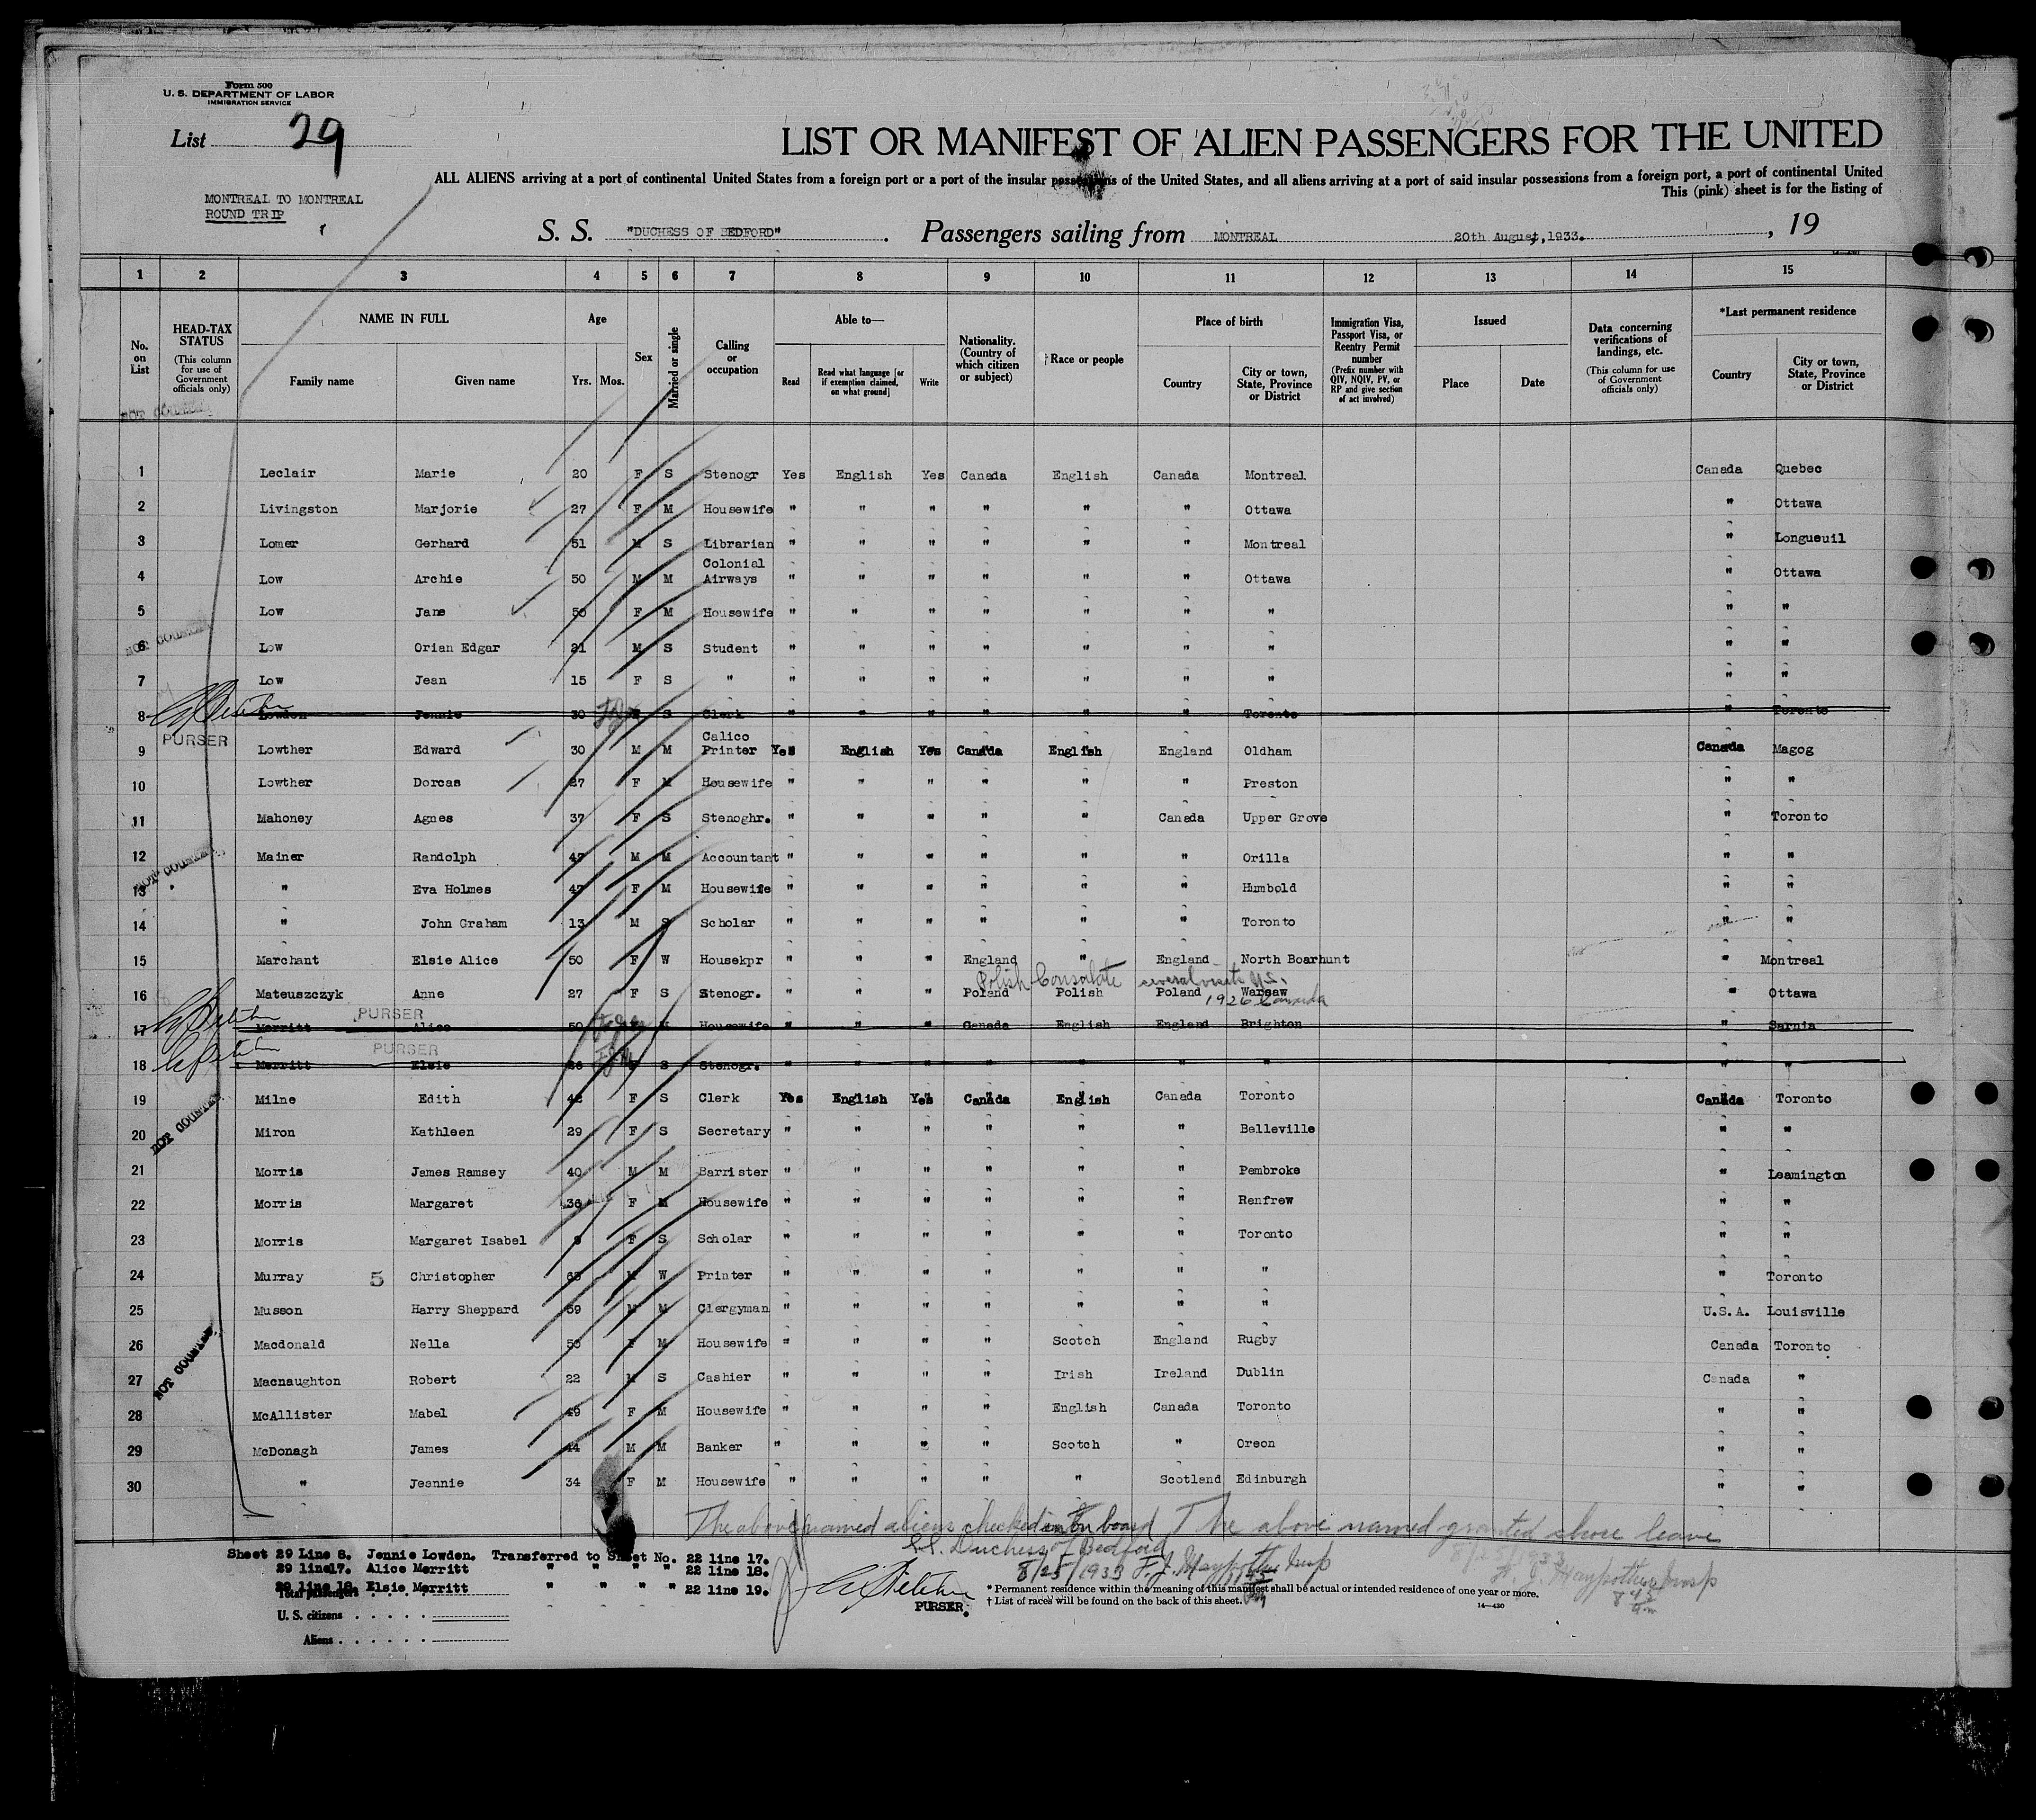 Form 500
U. S. DEPARTMENT OF LABOR
IMMIGRATION SERVICE
List 29
LIST OR MANIFEST OF ALIEN PASSENGERS FOR THE UNITED
ALL ALIENS arriving at a port of continental United States from a foreign port or a port of the insular possessions of the United States, and all aliens arriving at a port of said insular possessions from a foreign port, a port of continental United
This (pink) sheet is for the listing of
MONTREAL TO MONTREAL
ROUND TRIP
S. S. "DUCHESS OF BEDFORD". Passengers sailing from MONTREAL 20th August, 1933. , 19
1 2 3 4 5 6 7 8 9 10 11 12 13 14 15
No. on List
HEAD-TAX STATUS (This column for use of Government officials only)
NAME IN FULL Family name Given name
Age Yrs. Mos.
Sex
Married or single
Calling or occupation
Able to— Read Read what language [or if exemption claimed, on what ground] Write
Nationality. (Country of which citizen or subject)
†Race or people
Place of birth Country City or town, State, Province or District
Immigration Visa, Passport Visa, or Reentry Permit number (Prefix number with QIV, NQIV, PV, or RP and give section of act involved)
Issued Place Date
Data concerning verifications of landings, etc. (This column for use of Government officials only)
*Last permanent residence Country City or town, State, Province or District
NOT COUNTED
1 Leclair Marie 20 F S Stenogr Yes English Yes Canada English Canada Montreal Canada Quebec
2 Livingston Marjorie 27 F M Housewife " " " " " " Ottawa " Ottawa
3 Lomer Gerhard 51 M S Librarian " " " " " " Montreal " Longueuil
4 Low Archie 50 M M Colonial Airways " " " " " " Ottawa " Ottawa
5 Low Jane 50 F M Housewife " " " " " " " " "
NOT COUNTED
6 Low Orian Edgar 21 M S Student " " " " " " " " "
7 Low Jean 15 F S " " " " " " " " " "
8 Lowden Jennie 30 F S Clerk " " " " " " Toronto " Toronto
PURSER
9 Lowther Edward 30 M M Calico Printer Yes English Yes Canada English England Oldham Canada Magog
10 Lowther Dorcas 27 F M Housewife " " " " " " Preston " "
11 Mahoney Agnes 37 F S Stenoghr. " " " " " Canada Upper Grove " Toronto
12 Mainer Randolph 47 M M Accountant " " " " " " Orilla " "
NOT COUNTED
13 " Eva Holmes 47 F M Housewife " " " " " " Humbold " "
14 " John Graham 13 M S Scholar " " " " " " Toronto " "
15 Marchant Elsie Alice 50 F W Housekpr " " " England " England North Boarhunt " Montreal
Polish Consulate several visits U.S.
16 Mateuszczyk Anne 27 F S Stenogr. " " " Poland Polish Poland Warsaw " Ottawa
1926 Canada
PURSER
17 Merritt Alice 50 F M Housewife " " " Canada English England Brighton " Sarnia
PURSER
18 Merritt Elsie 26 F S Stenogr. " " " " " " " " "
19 Milne Edith 42 F S Clerk Yes English Yes Canada English Canada Toronto Canada Toronto
NOT COUNTED
20 Miron Kathleen 29 F S Secretary " " " " " " Belleville " "
21 Morris James Ramsey 40 M M Barrister " " " " " " Pembroke " Leamington
22 Morris Margaret 36 F M Housewife " " " " " " Renfrew " "
23 Morris Margaret Isabel 9 F S Scholar " " " " " " Toronto " "
24 Murray 5 Christopher 65 M W Printer " " " " " " " " Toronto
25 Musson Harry Sheppard 59 M M Clergyman " " " " " " " U.S.A. Louisville
26 Macdonald Nella 50 F M Housewife " " " " Scotch England Rugby Canada Toronto
NOT COUNTED
27 Macnaughton Robert 22 M S Cashier " " " " Irish Ireland Dublin Canada "
28 McAllister Mabel 49 F M Housewife " " " " English Canada Toronto " "
29 McDonagh James 44 M M Banker " " " " Scotch " Oreon " "
30 " Jeannie 34 F M Housewife " " " " " Scotland Edinburgh " "
The above named aliens checked on board
S.S. Duchess of Bedford
8/25/1933
The above named granted shore leave
8/25/1933
Sheet 29 Line 8. Jennie Lowden. Transferred to Sheet No. 22 line 17.
29 line17. Alice Merritt " " " " 22 line 18.
29 line 18. Elsie Merritt " " " " 22 line 19.
Total passengers
U. S. citizens
Aliens
PURSER.
* Permanent residence within the meaning of this manifest shall be actual or intended residence of one year or more.
† List of races will be found on the back of this sheet.
14—430